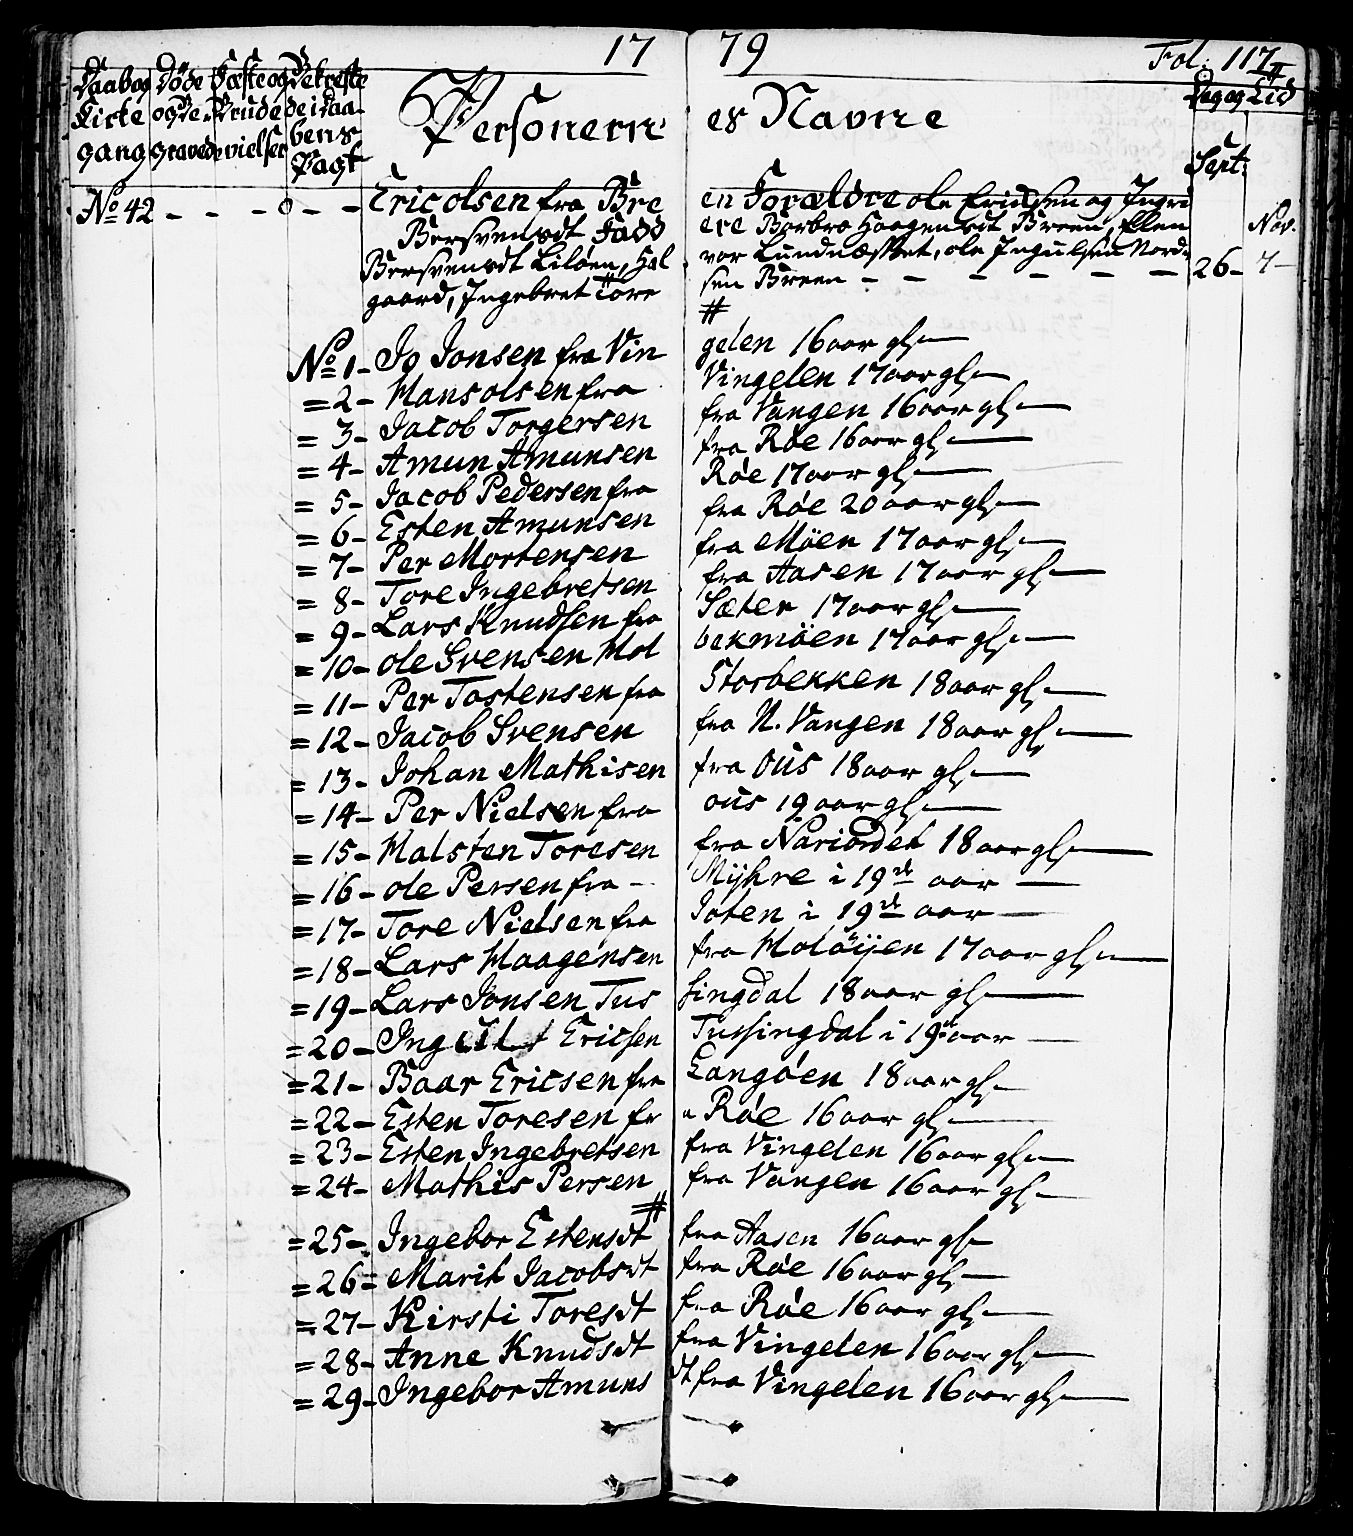 17 79 Fol: 117
Daab og Kirke gang
Døde og Be- gravede
Fæste og Brude vielser
Bekrefte de i Daa- bens Pagt
Personern es Navne
Dag og Tid
Sept:
No 42 - - - 0 - - Eric olsen fra Bre en Forældre ole Ericksen og Ingri
Bersvensdt Fadd ere Barbro Haagensdt Breen, Ellen Nov.
Bersvensdt Liløen, Hal vor Lundnæsset, ole Ingulsen Nord- 26- 7-
gaard, Ingebret Tore sen Breen - - - - - -
#
No 1- Jo Jonsen fra Vin gelen 16 aar gl,
= 2- Hans olsen fra Vingelen 17 aar gl,
= 3- Jacob Torgersen fra Vangen 16 aar gl,
= 4- Amun Amunsen fra Røe 16 aar gl,
= 5- Jacob Pedersen fra Røe 17 aar gl,
= 6- Esten Amunsen fra Røe 20 aar gl,
= 7- Per Mortensen fra Møen 17 aar gl,
= 8- Tore Ingebretsen fra Aasen 17 aar gl,
= 9- Lars Knudsen fra Sæter 17 aar gl,
= 10- ole Svensen Hol bekmöen 17 aar gl,
= 11- Per Tostensen fra Storbekken 18 aar gl,
= 12- Jacob Svensen fra N. Vangen 18 aar gl,
= 13- Johan Mathisen fra ous 18 aar gl,
= 14- Per Nielsen fra ous 19 aar gl,
= 15- Halsten Toresen fra Nariordet 18 aar gl,
= 16- ole Persen fra - Mÿhre i 19de aar
= 17- Tore Nielsen fra Joten i 19de aar
= 18- Lars Haagensen fra Holøÿen 17 aar gl,
= 19- Lars Jonsen Tus singdal 18 aar gl,
= 20- Ericsen Tussingdal i 19de aar
= 21- Baar Ericsen fra Langøen 18 aar gl,
= 22- Esten Toresen fr a Røe 16 aar gl,
= 23- Esten Ingebretsen fra Vingelen 16 aar gl,
= 24- Mathis Persen fra Vangen 16 aar gl,
#
= 25- Ingebor Estensdt fra Aasen 16 aar gl,
= 26- Marit Jacobsdt fra Røe 16 aar gl,
= 27- Kirsti Toresdt fra Røe 16 aar gl,
= 28- Anne Knudsdt fra Vingelen 16 aar gl,
= 29- Ingebor Amuns dt fra Vingelen 16 aar gl,